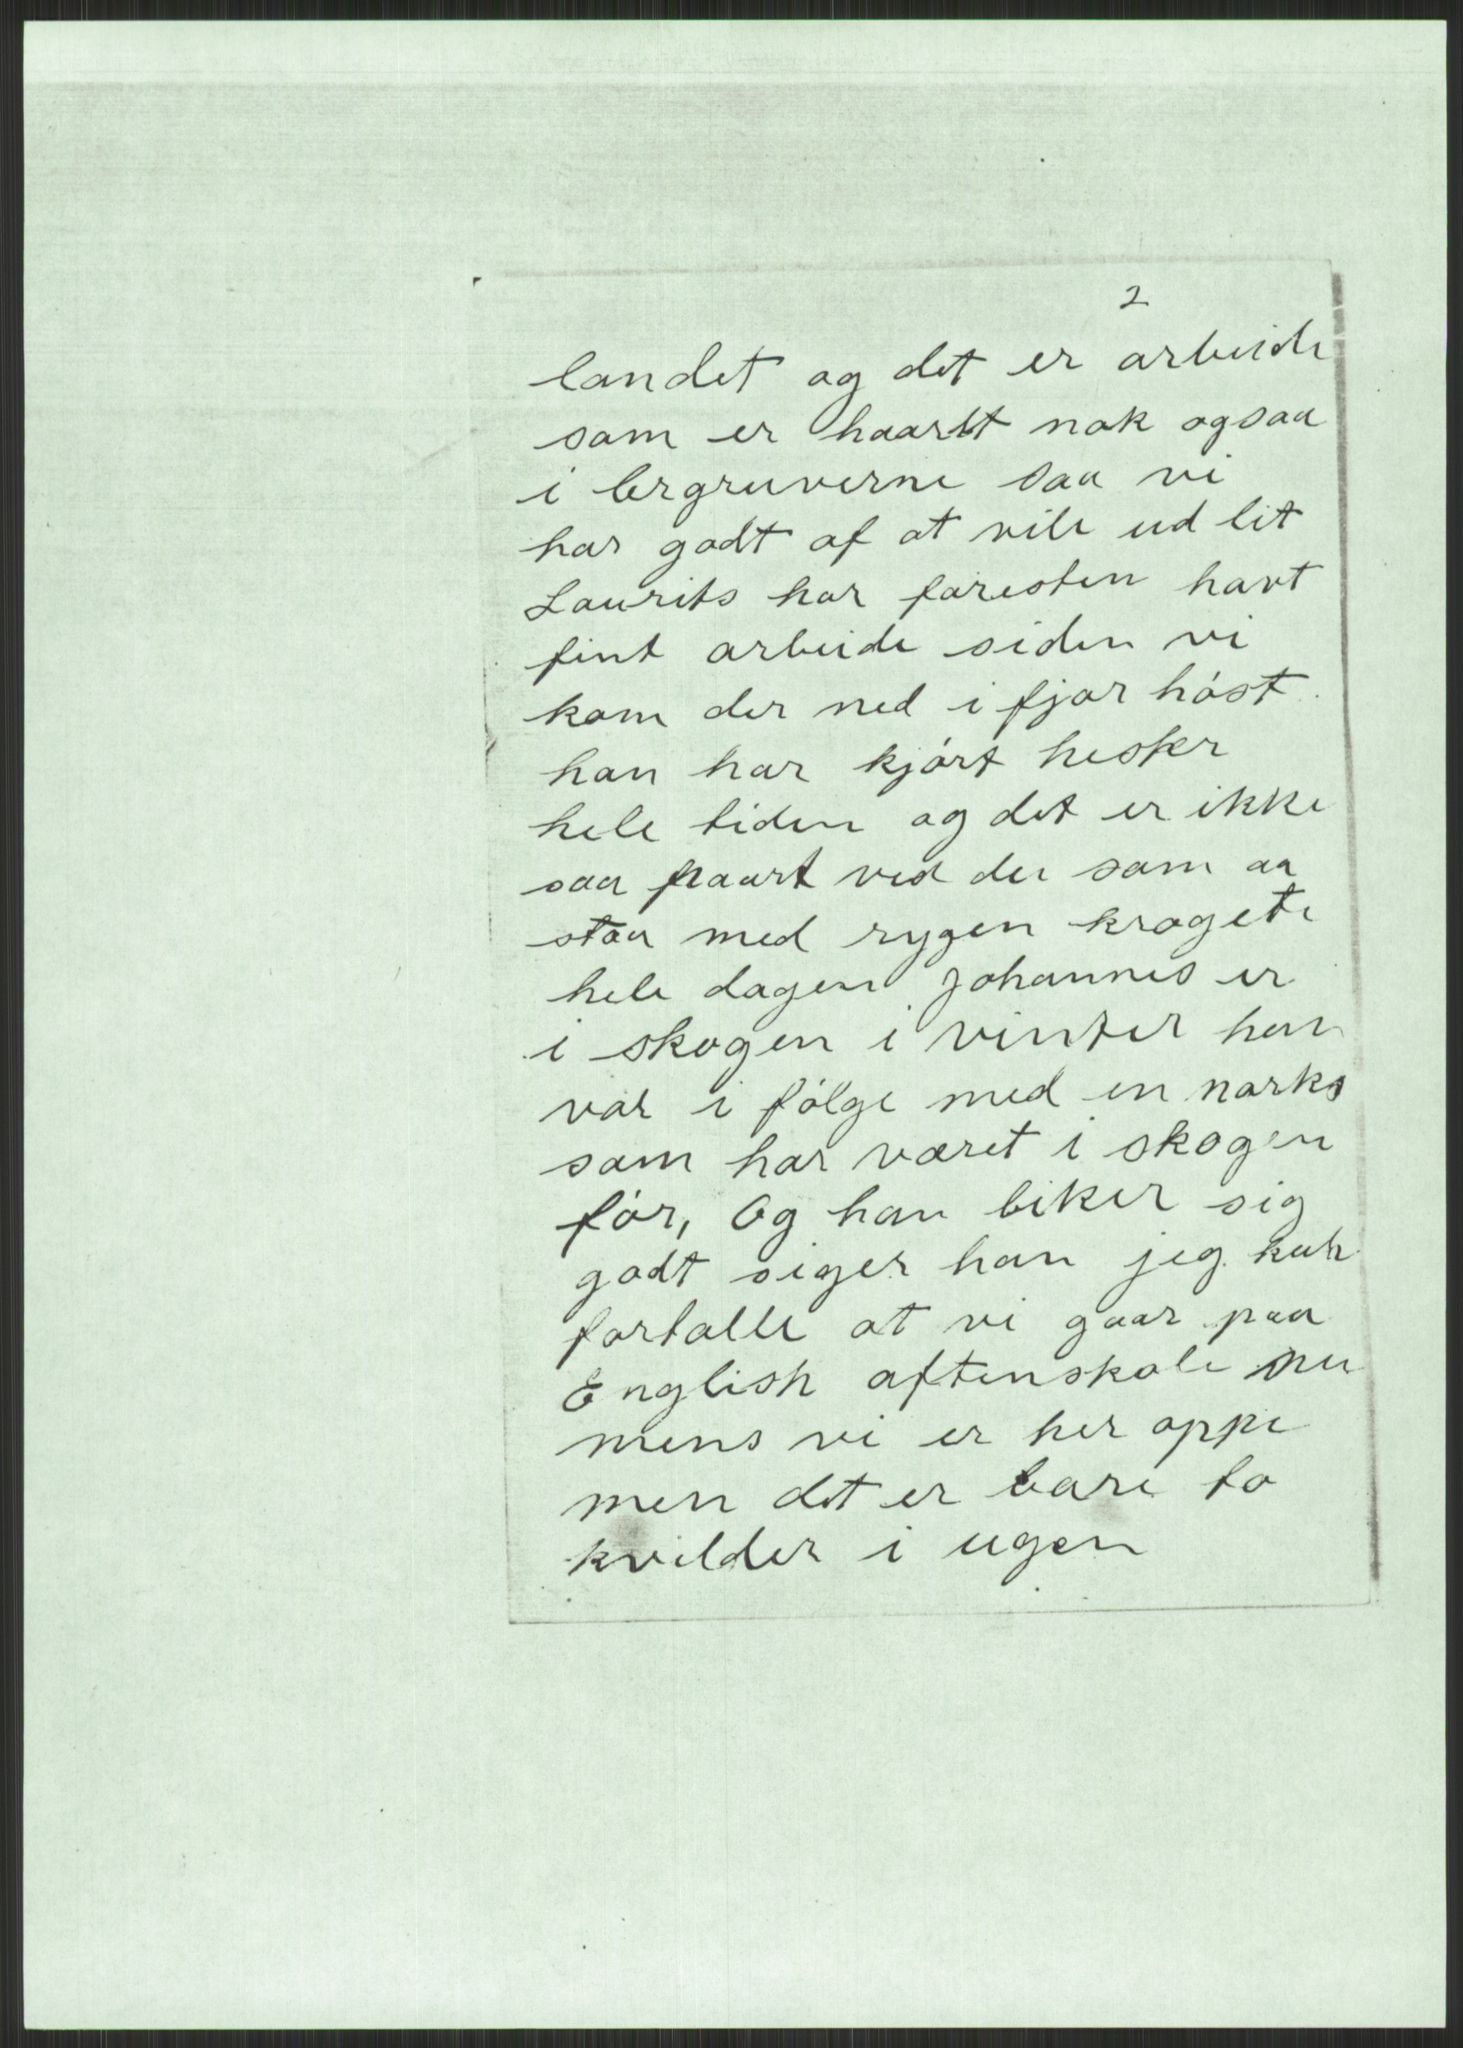 2
landet og det er arbeide
som er haardt nok ogsaa
i lergruverne saa vi
har godt af at vile ud lit
Laurits har foresten havt
fint arbeide siden vi
kom der ned i fjor høst
han har kjørt hester
hele tiden og det er ikke
saa haart ved det som aa
staa med rygen krogete
hele dagen Johannes er
i skogen i vinter han
var i følge med en norks
som har været i skogen
før, Og han liker sig
godt siger han jeg kan
fortælle at vi gaar paa
English aftenskole nu
mens vi er her oppe
men det er bare to
kvelder i ugen